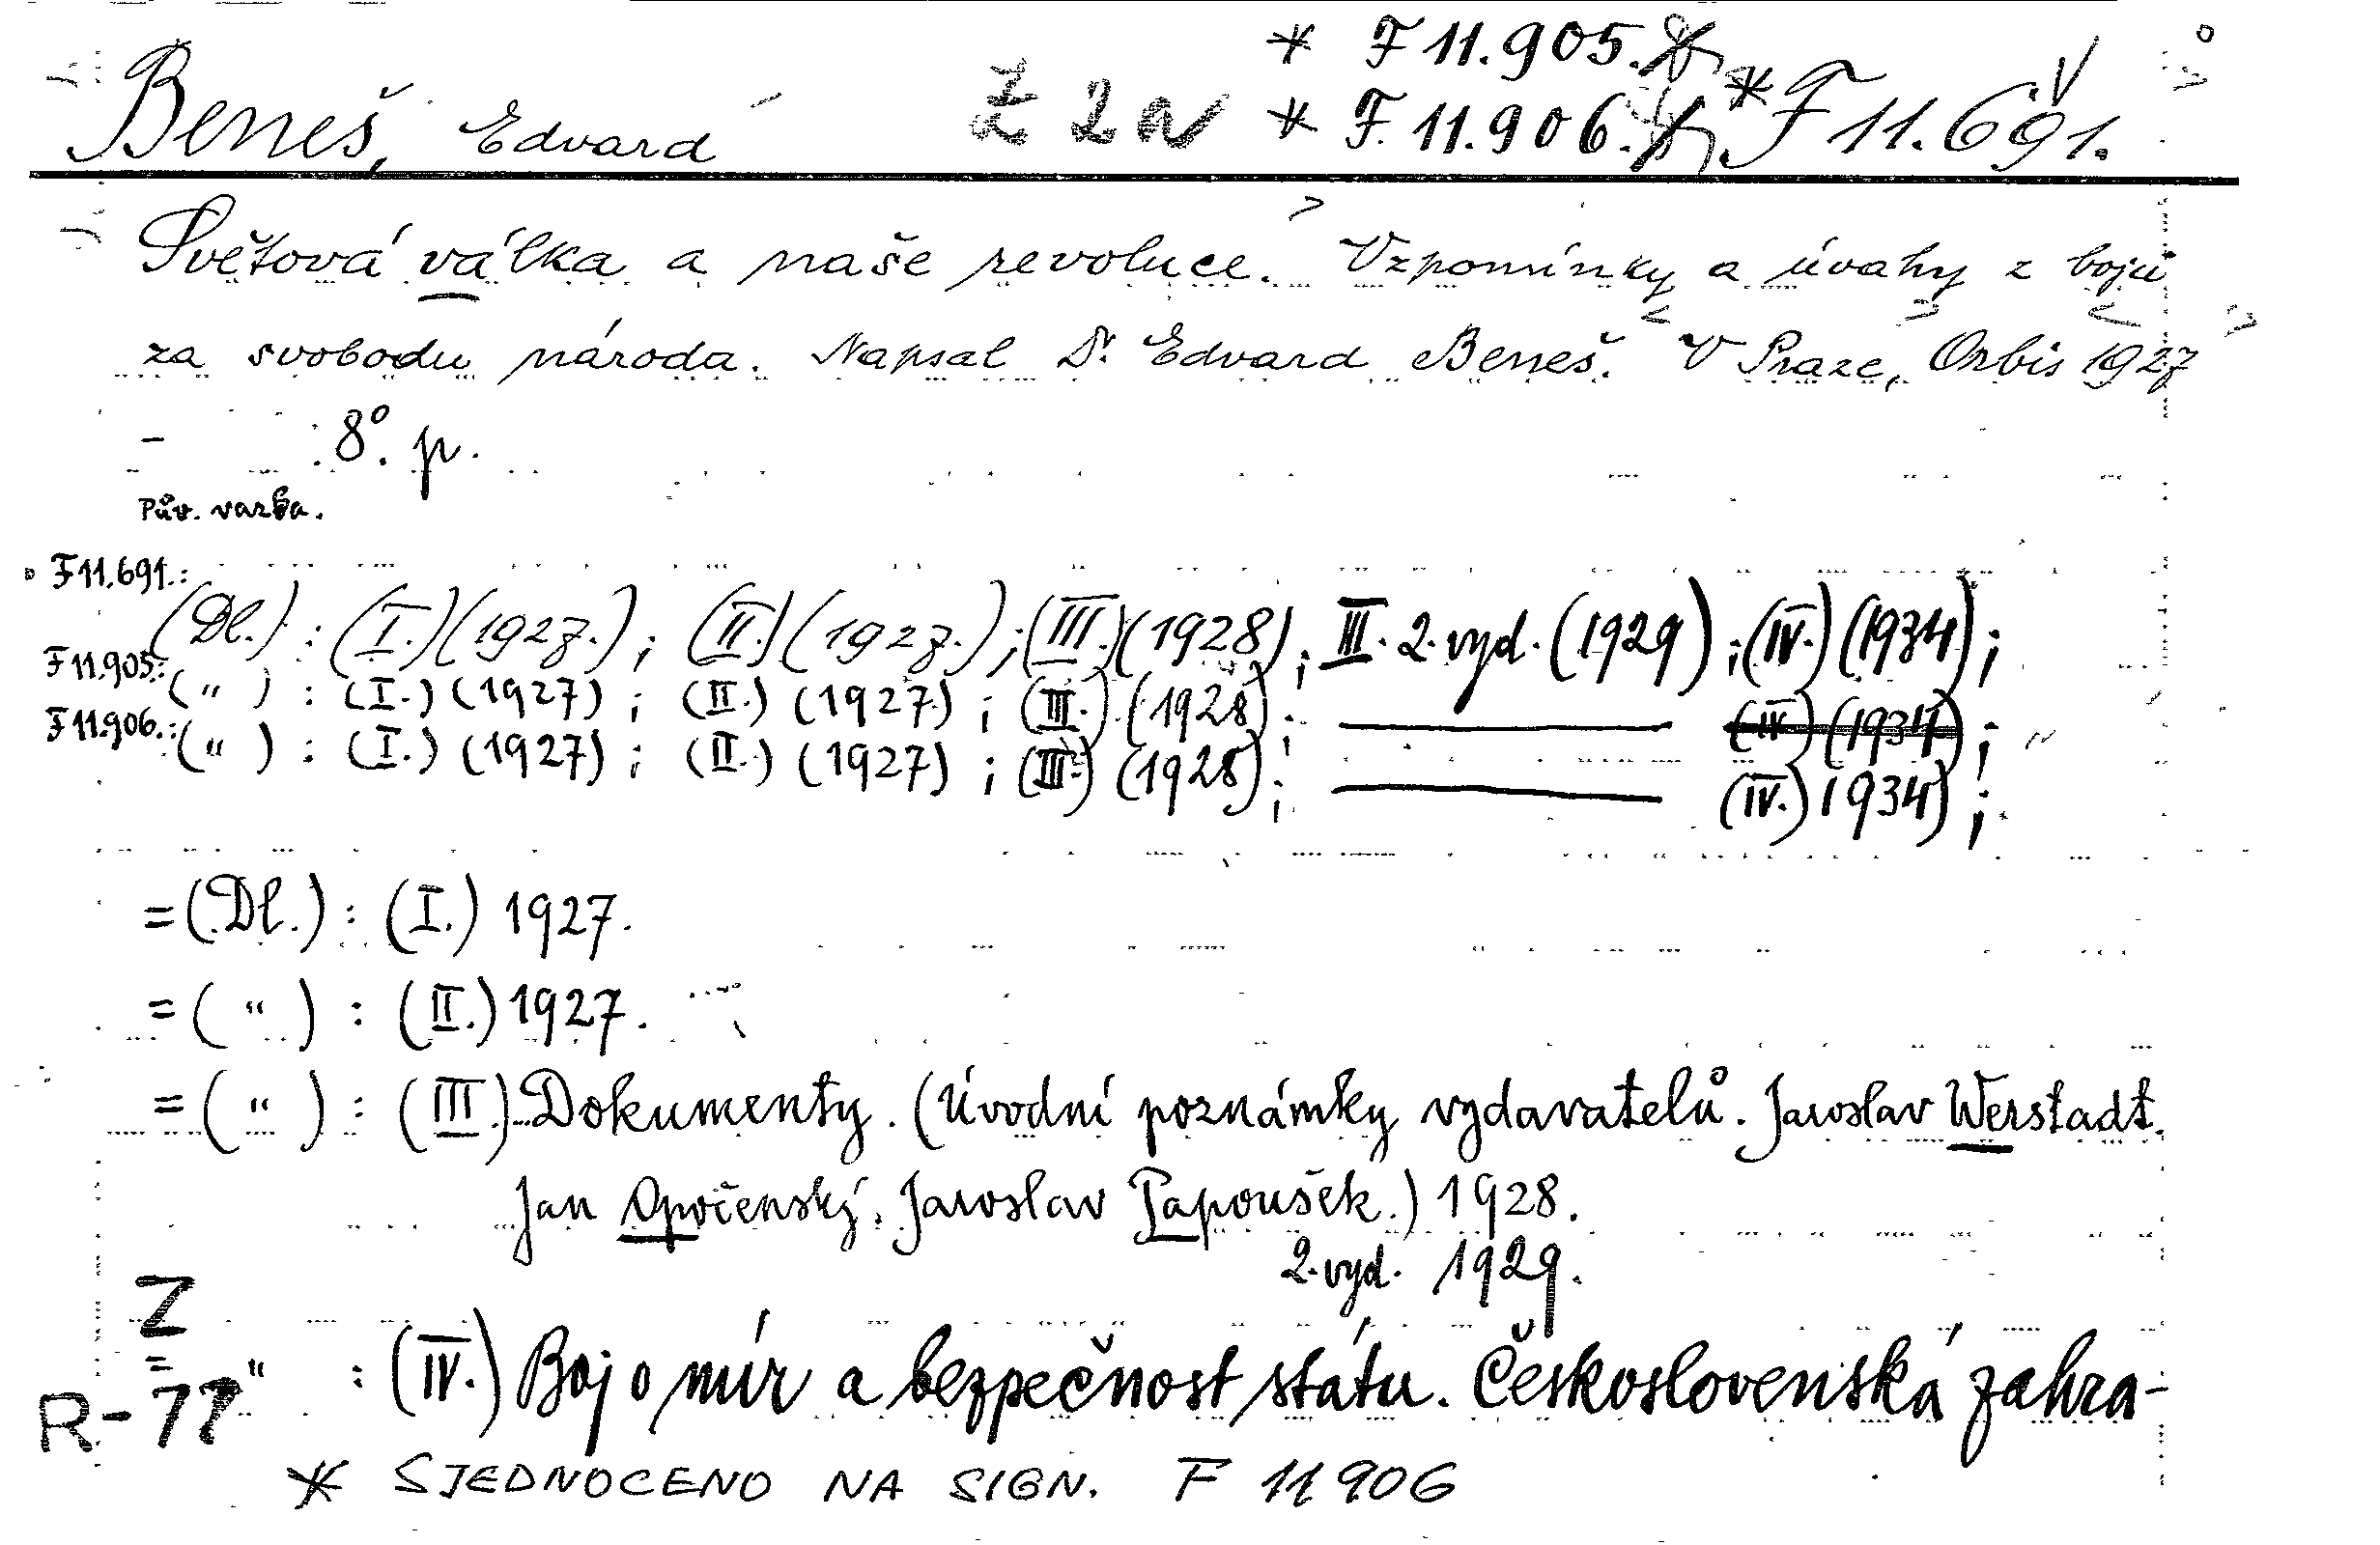 * F 11.905.
Beneš, Edvard Z 2a * F. 11.906. * F 11.691.
Světová válka a naše revoluce. Vzpomínky a úvahy z bojů
za svobodu národa. Napsal Dr. Edvard Beneš. V Praze, Orbis 1927
- : 8°. p.
Pův. vazba.
F 11.691.:
(Dl.) : (I.) (1927.) ; (II.) (1927.) ; (III.) (1928) ; III. 2. vyd. (1929) ; (IV.) (1934) ;
F 11.905.: ( " ) : (I.) (1927) ; (II.) (1927) ; (III.) (1928) ; (IV.) (1934) ;
F 11.906.: ( " ) : (I.) (1927) ; (II.) (1927) ; (III.) (1928) ; (IV.) 1934) ;
= (Dl.) : (I.) 1927.
= ( " ) : (II.) 1927.
= ( " ) : (III.) Dokumenty. (Úvodní poznámky vydavatelů. Jaroslav Werstadt.
Jan Opočenský. Jaroslav Papoušek.) 1928.
2. vyd. 1929.
Z
= " : (IV.) Boj o mír a bezpečnost státu. Československá zahra-
R-77
* SJEDNOCENO NA SIGN. F 11906